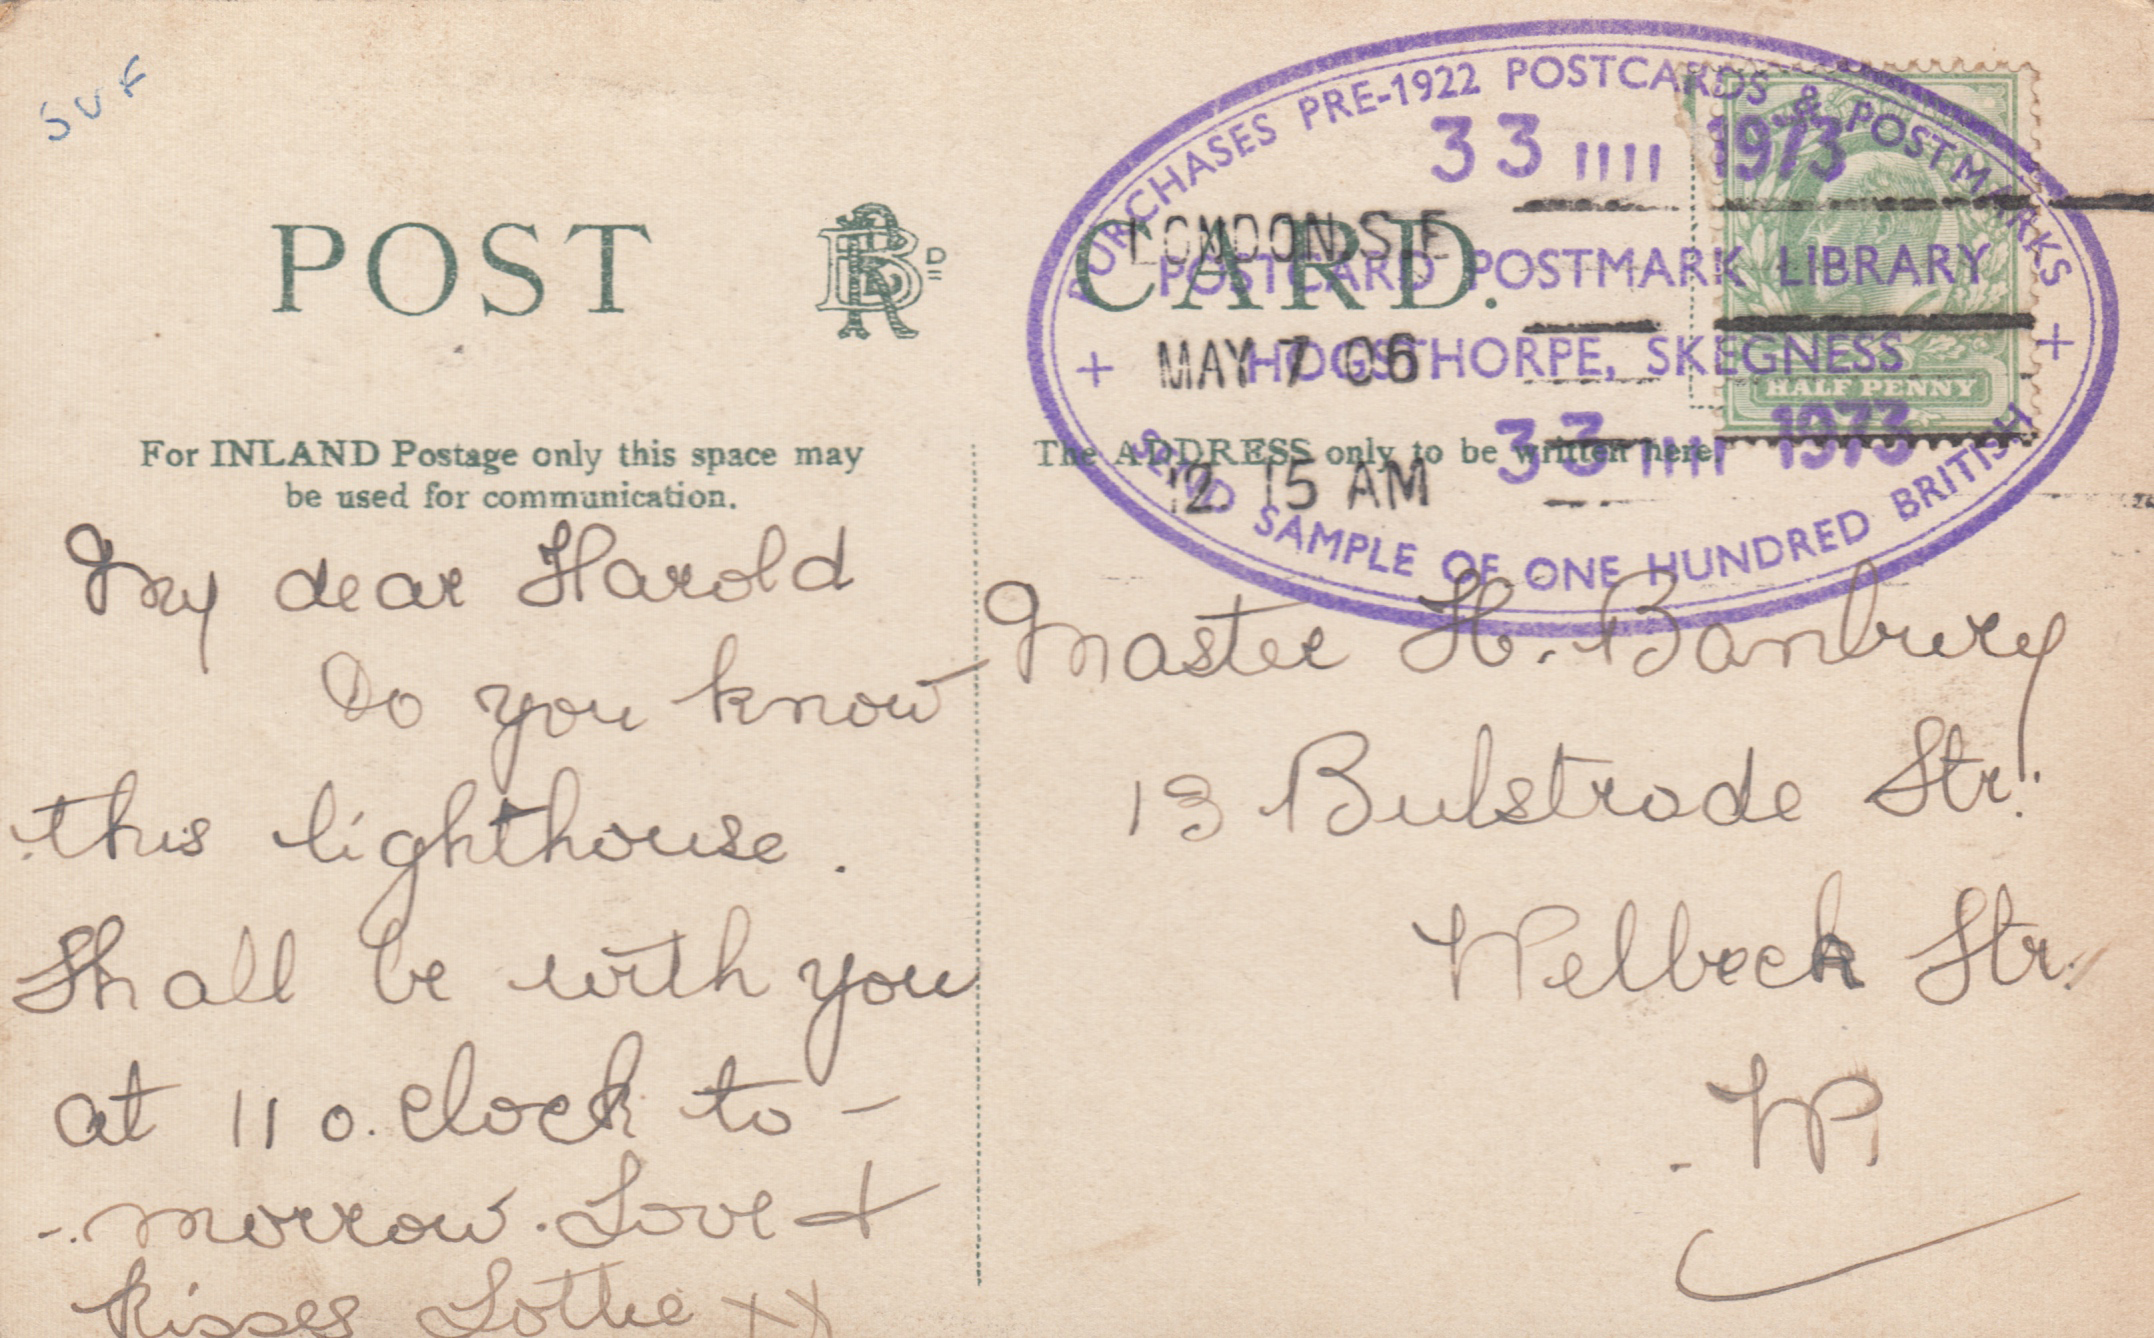 SUF
POST CARD.
RBD
PURCHASES PRE-1922 POSTCARDS & POSTMARKS
33 1111 1973
LONDON. S.E
POSTCARD POSTMARK LIBRARY
MAY 7 06
+ HOGSTHORPE, SKEGNESS +
HALF PENNY
33 1111 1973
12. 15 AM
SEND SAMPLE OF ONE HUNDRED BRITISH
For INLAND Postage only this space may
be used for communication.
The ADDRESS only to be written here.
My dear Harold
Do you know
this lighthouse.
Shall be with you
at 11 o. clock to -
- morrow. Love +
kisses Lottie xx
Master H. Banbury
13 Bulstrode Str.
Welbeck Str.
W